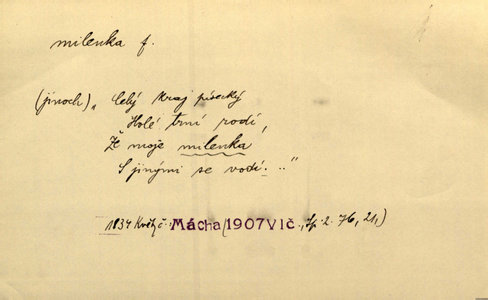 milenka f.
(jinoch) „Celý kraj písecký
Holé trní rodí,
Že moje milenka
S jinými se vodí. .."
1834 Květy č. Mácha (1907 Vlč., Sp. 2. 76, 21,)